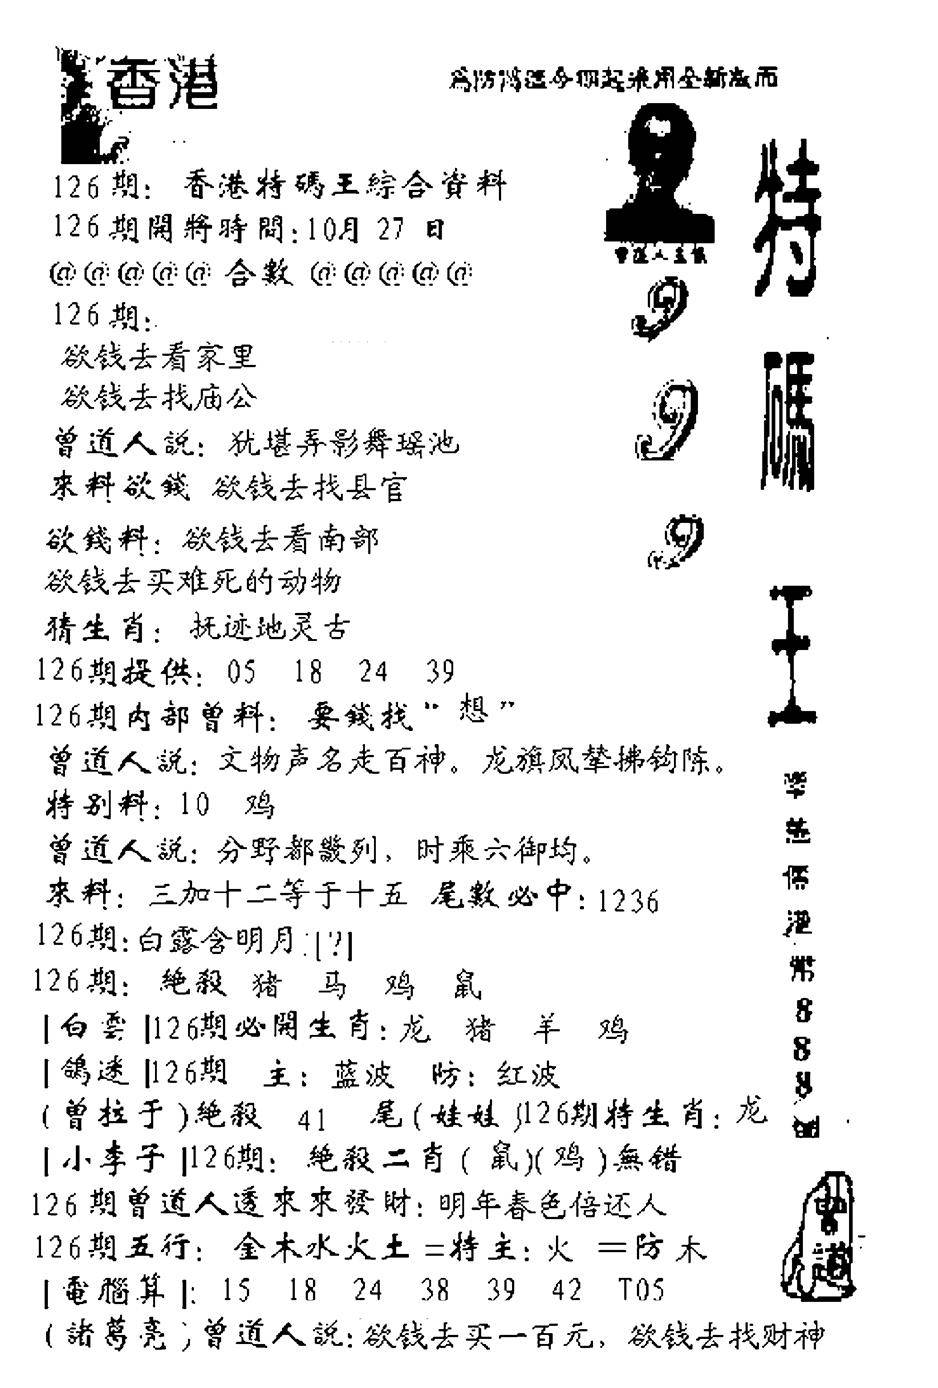 香港
126期: 香港特碼王綜合資料
126期開將時間:10月 27 日
@@@@@ 合數 @@@@@
126期:
欲钱去看家里
欲钱去找庙公
曾道人說: 犹堪弄影舞瑶池
來料欲錢 欲钱去找县官
欲錢料: 欲钱去看南部
欲钱去买难死的动物
猜生肖: 抚迹地灵古
126期提供: 05 18 24 39
126期内部曾料: 要錢找“想”
曾道人說: 文物声名走百神。龙旗凤辇拂钩陈。
特别料: 10 鸡
曾道人說: 分野都畿列, 时乘六御均。
來料: 三加十二等于十五 尾數必中: 1236
126期:白露含明月:[?]
126期: 絶殺 猪 马 鸡 鼠
|白雲|126期必開生肖: 龙 猪 羊 鸡
|鴿迷|126期 主: 蓝波 防: 红波
(曾拉于)絶殺 41 尾(娃娃)126期特生肖: 龙
|小李子|126期: 絶殺二肖(鼠)(鸡)無錯
126期曾道人透來來發財: 明年春色倍还人
126期五行: 金木水火土=特主: 火 =防木
|電腦算|: 15 18 24 38 39 42 T05
(諸葛亮)曾道人說: 欲钱去买一百元, 欲钱去找财神
特碼王
999
888